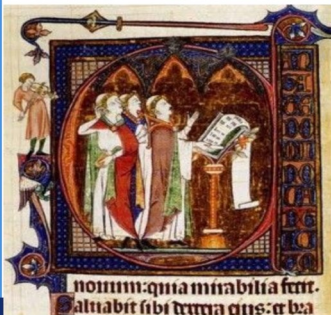 nouum:quia mirabilia fecit.
Saluabit sibi dextera eius: et bra